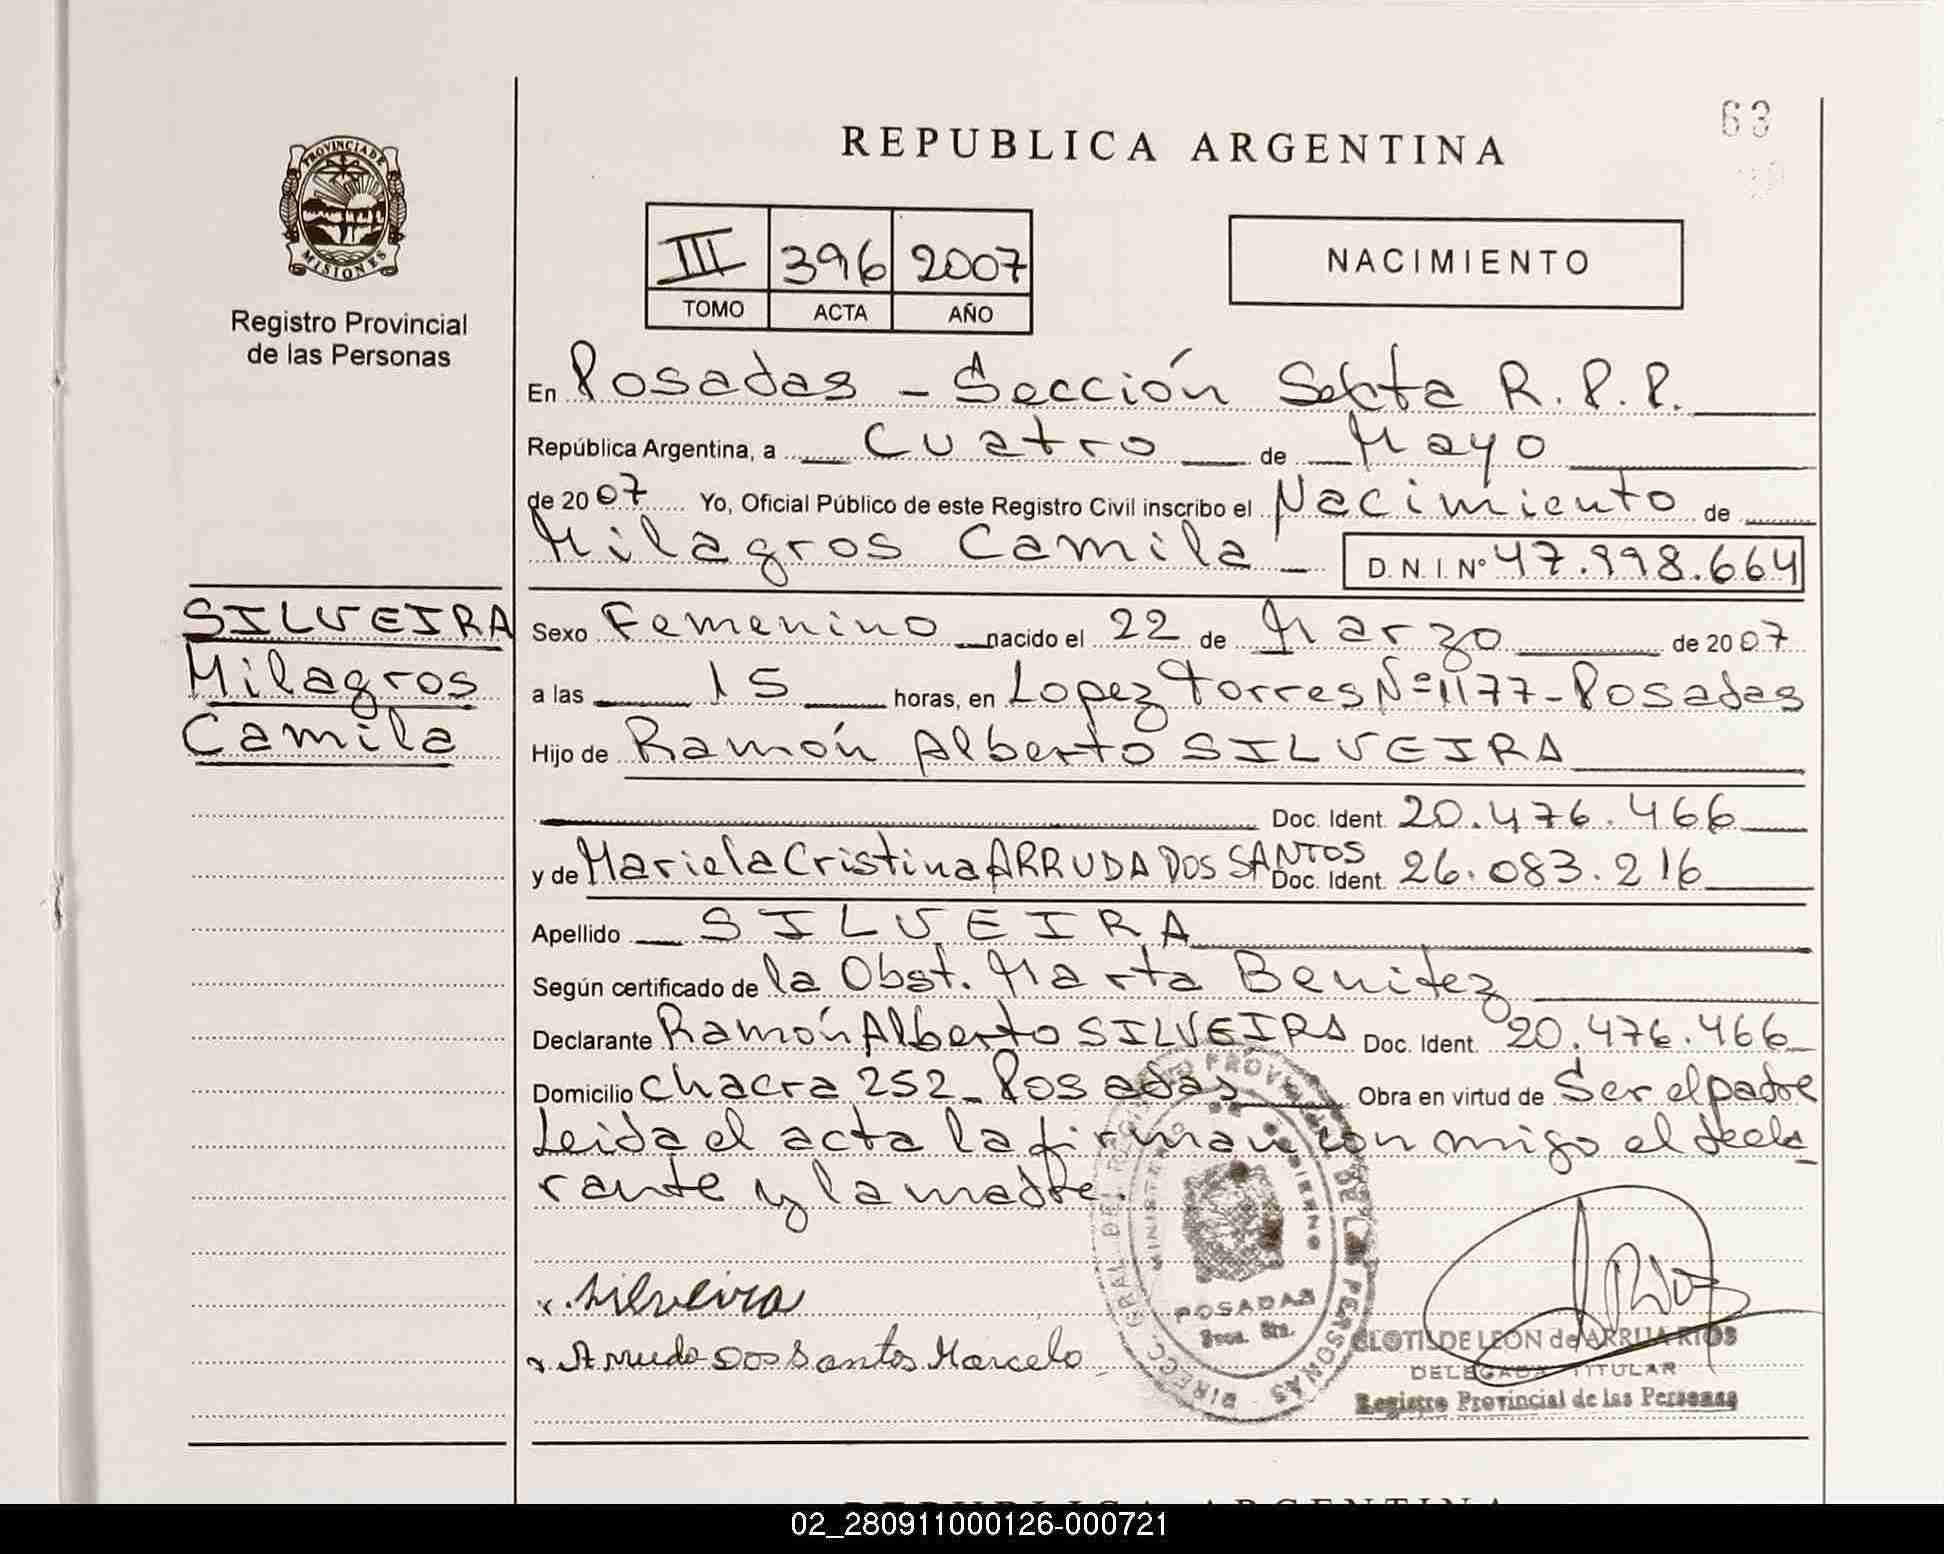 63
REPUBLICA ARGENTINA
PROVINCIA DE
MISIONES
Registro Provincial
de las Personas
III 396 2007
TOMO ACTA AÑO
NACIMIENTO
En Posadas - Sección Sexta R.P.P.
República Argentina, a Cuatro de Mayo
de 2007 Yo, Oficial Público de este Registro Civil inscribo el Nacimiento de
Milagros Camila D.N.I. Nº 47.998.664
SILVEIRA
Milagros
Camila
Sexo Femenino nacido el 22 de Marzo de 2007
a las 15 horas, en Lopez Torres Nº 1177 - Posadas
Hijo de Ramón Alberto SILVEIRA
Doc. Ident. 20.476.466
y de Mariela Cristina ARRUDA DOS SANTOS Doc. Ident. 26.083.216
Apellido SILVEIRA
Según certificado de la Obst. Marta Benitez
Declarante Ramón Alberto SILVEIRA Doc. Ident. 20.476.466
Domicilio Chacra 252 - Posadas Obra en virtud de Ser el padre
Leida el acta la firman con migo el decla
rante y la madre.
Silveira
Arruda Dos Santos
POSADAS
CLOTILDE LEON de ARRUA RIOS
DELEGADA TITULAR
Registro Provincial de las Personas
REPUBLICA ARGENTINA
02_280911000126-000721